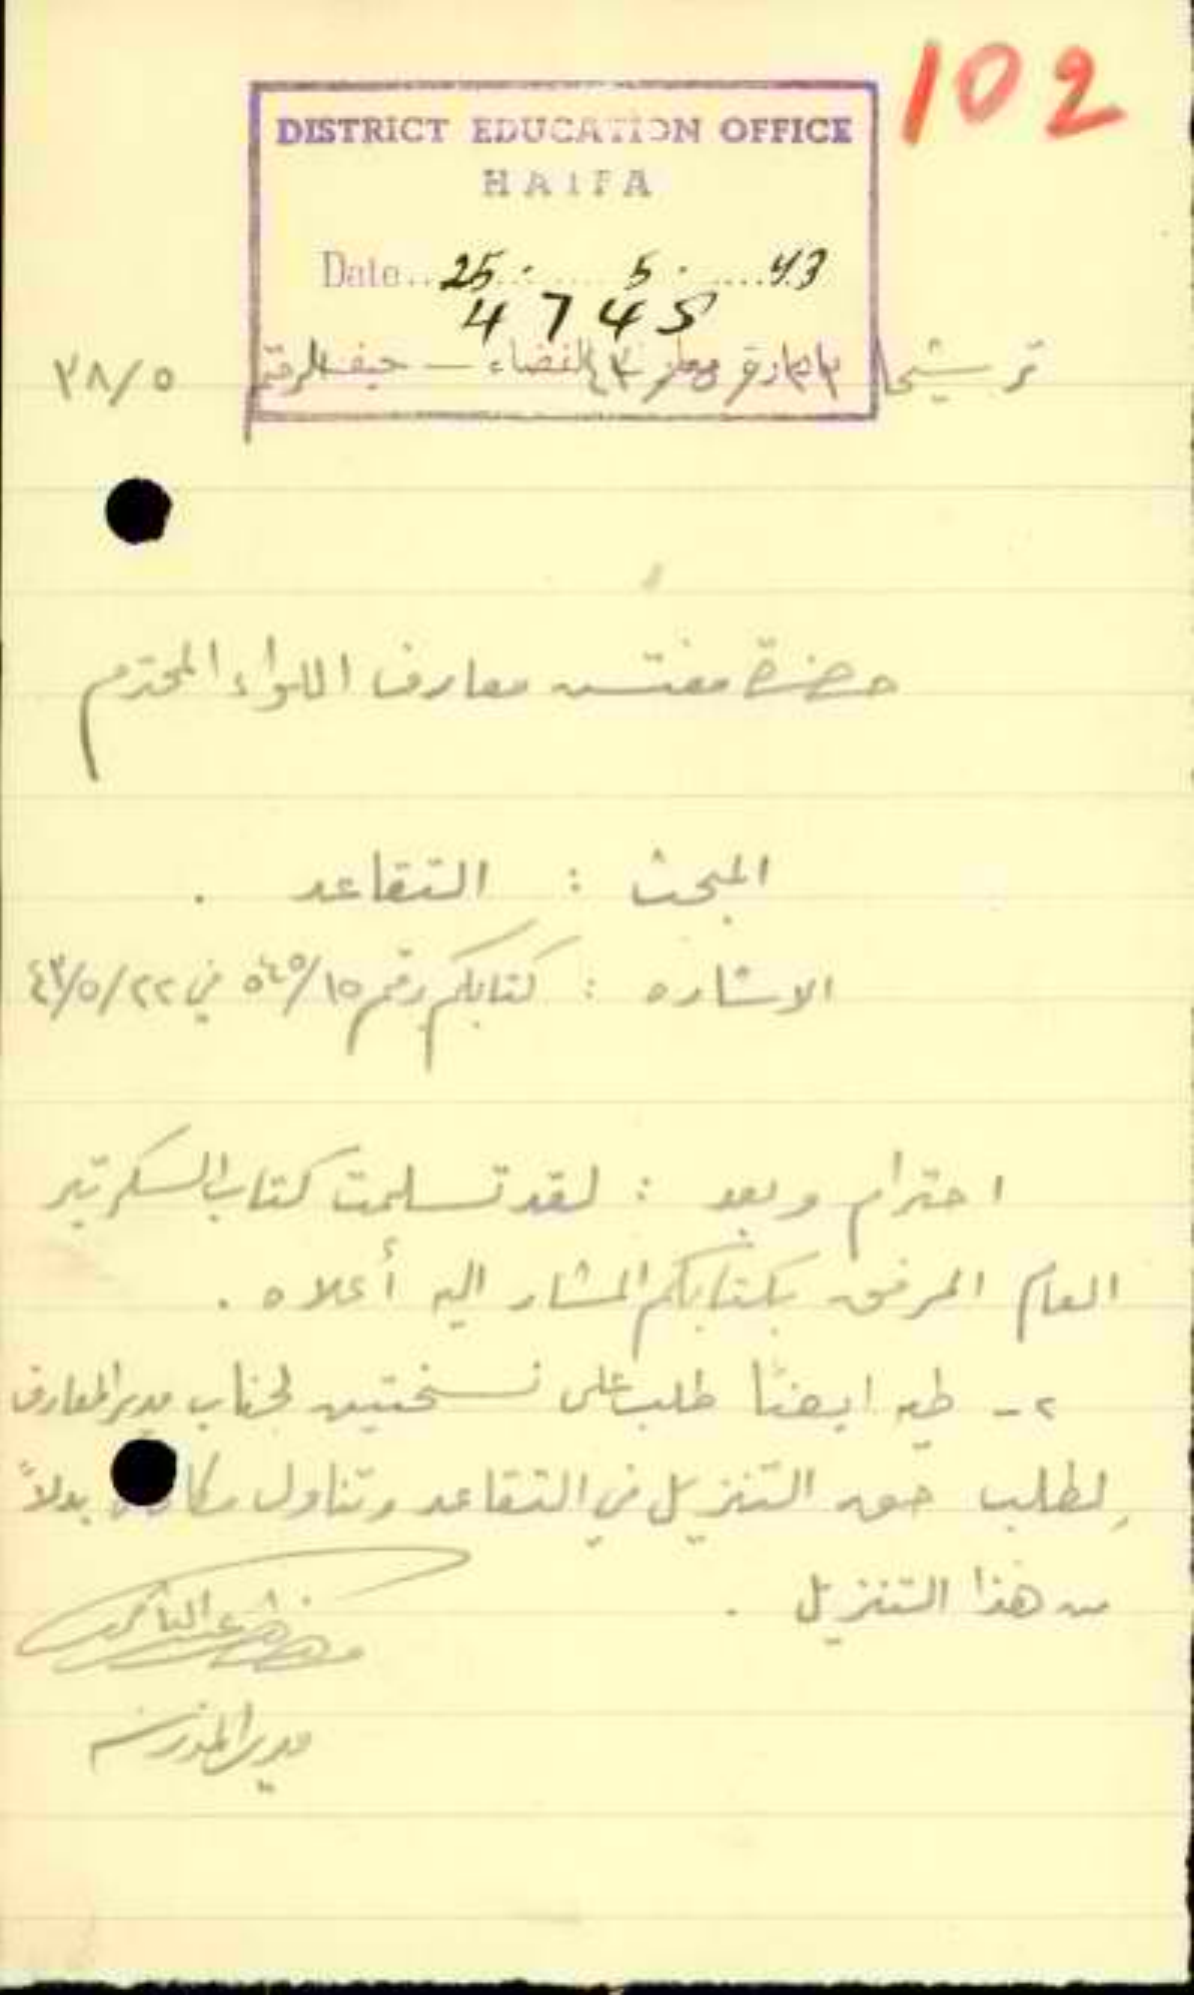 102
DISTRICT EDUCATION OFFICE
HAIFA
Date.. 25. 5. 43
4745
ترشيحا
القضاء – حيفا الرقم ٣٨/٥
حضرة مفتش معارف اللواء المحترم
المبحث : التقاعد .
الاشاره : كتابكم رقم ٥٤٥/١٥ في ٤٣/٥/٢٢
احترام وبعد : لقد تسلمت كتاب السكرتير
العام المرفق بكتابكم المشار اليه أعلاه .
٢- طيه ايضاً طلب على نسختين لجناب مدير المعارف
لطلب حق التنزيل في التقاعد وتناول بدلاً
من هذا التنزيل .
مدير المدرسة